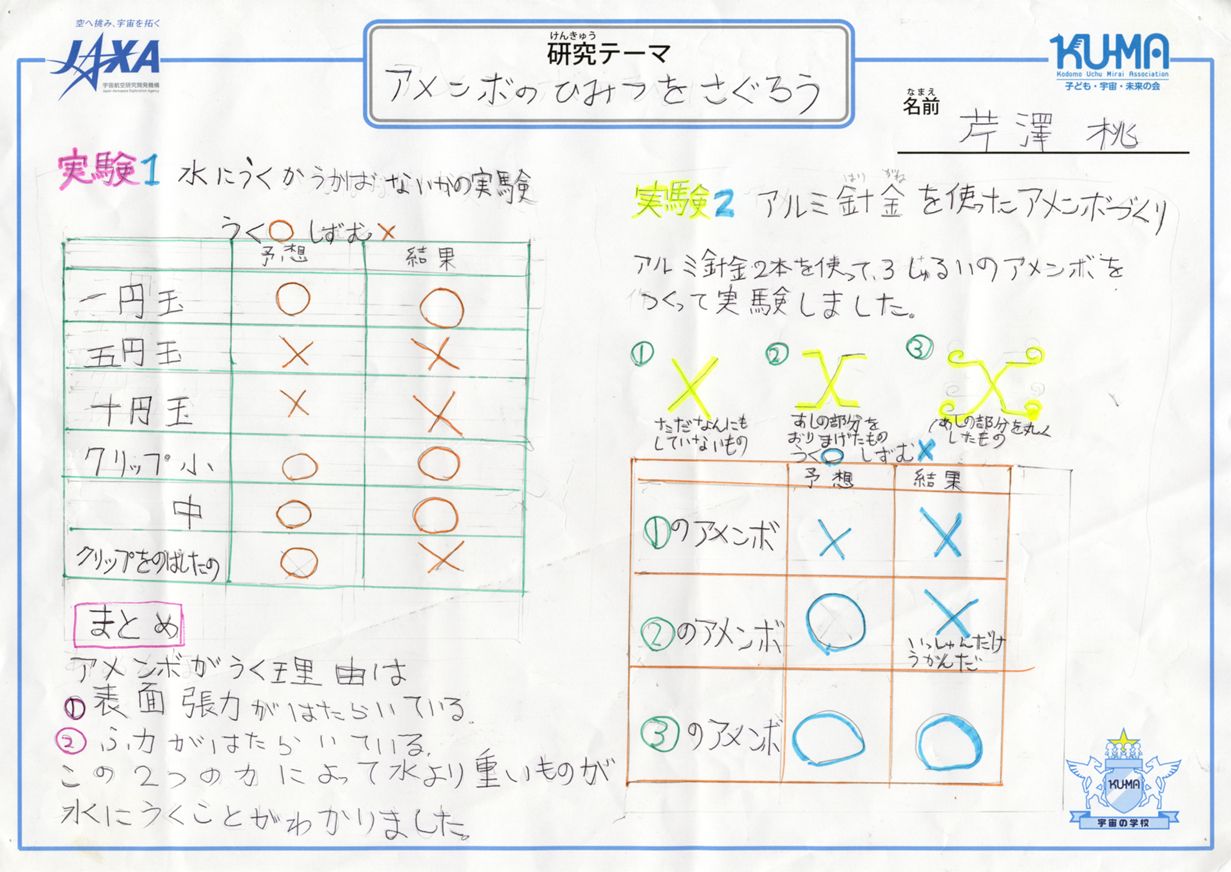 空へ挑み、宇宙を拓く
JAXA
宇宙航空研究開発機構
Japan Aerospace Exploration Agency
けんきゅう
研究テーマ
アメンボのひみつをさぐろう
KU-MA
Kodomo Uchu Mirai Association
子ども・宇宙・未来の会
なまえ
名前
芹澤 桃
実験1 水にうくかうかばないかの実験
うく○ しずむ×
予想 結果
一円玉 ○ ○
五円玉 × ×
十円玉 × ×
クリップ小 ○ ○
中 ○ ○
クリップをのばしたの ○ ×
まとめ
アメンボがうく理由は
①表面張力がはたらいている。
②ふ力がはたらいている。
この2つの力によって水より重いものが
水にうくことがわかりました。
はり がね
実験2 アルミ針金を使ったアメンボづくり
アルミ針金2本を使って、3しゅるいのアメンボを
つくって実験しました。
① ② ③
ただなんにも
していないもの
あしの部分を
おりまげたもの
あしの部分を丸く
したもの
うく○ しずむ×
予想 結果
①のアメンボ × ×
②のアメンボ ○ ×
いっしゅんだけ
うかんだ
③のアメンボ ○ ○
KU-MA
宇宙の学校